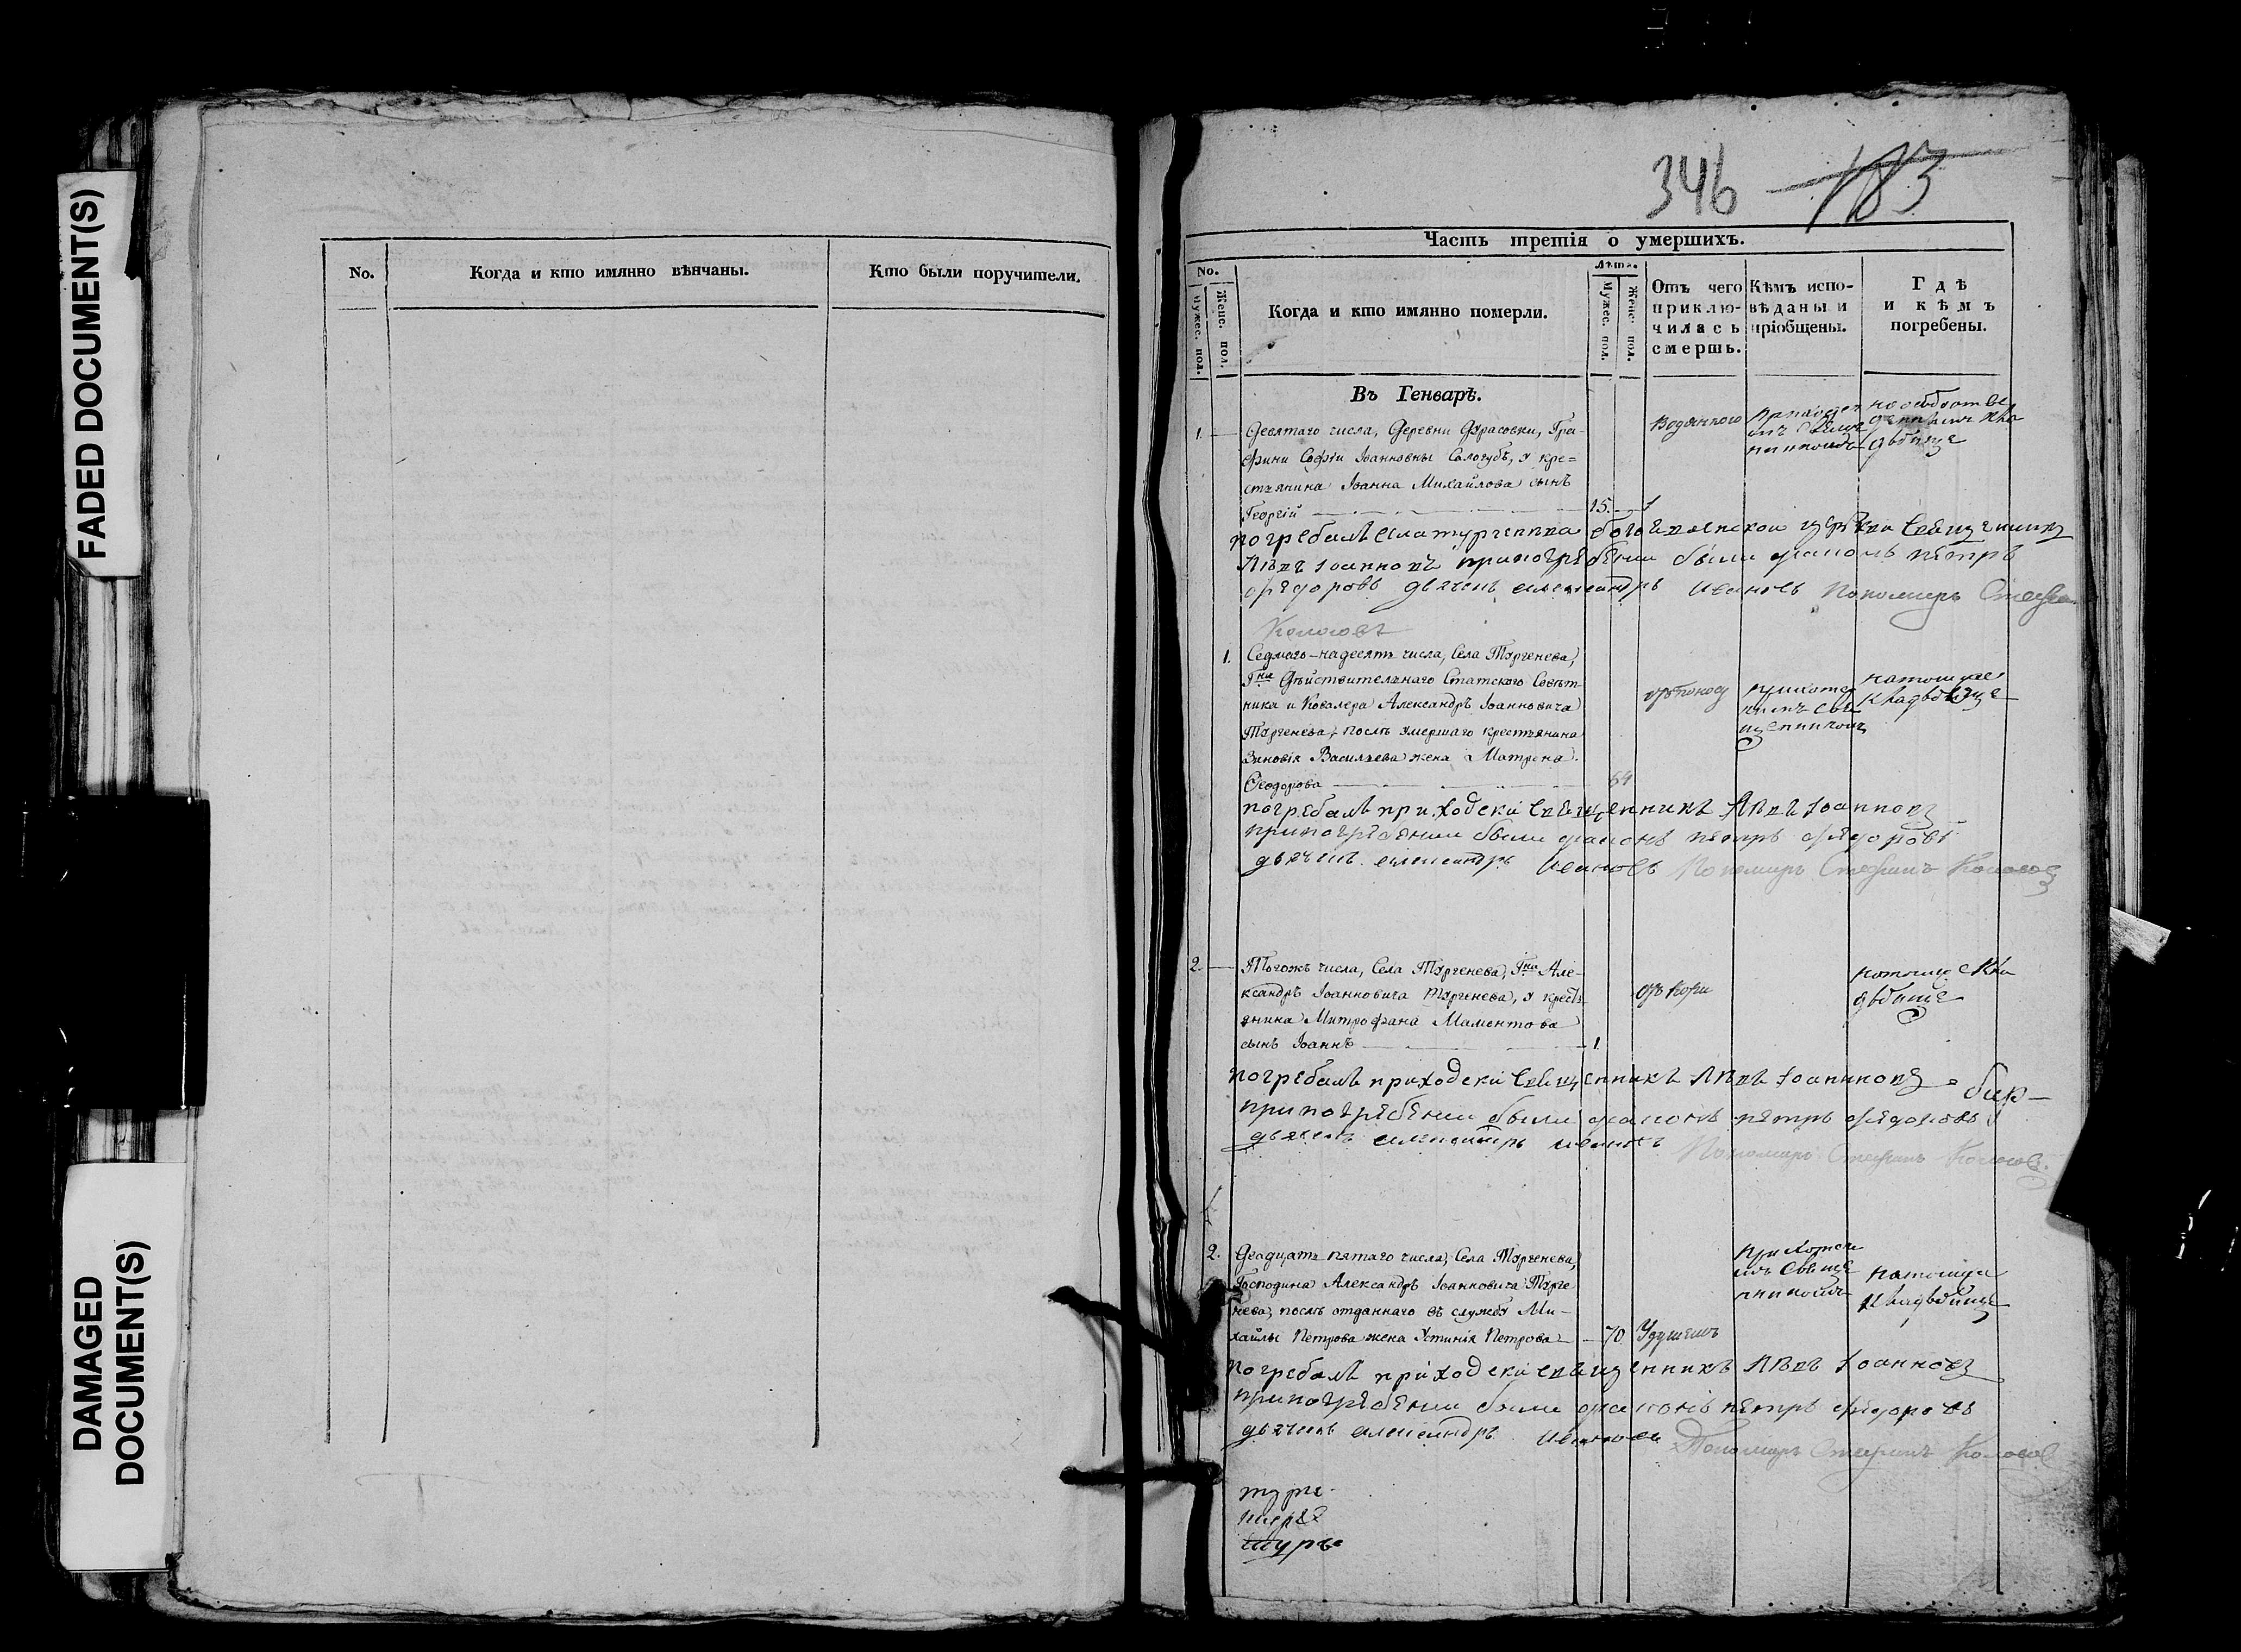 FADED DOCUMENT(S)
DAMAGED
DOCUMENT(S)
No.
Когда и кто имянно вѣнчаны.
Кто были поручители.
346 183
Часть третія о умершихъ.
No.
Мужес. пол.
Женс. пол.
Когда и кто имянно померли.
Лѣта.
Мужес. пол.
Женс. пол.
Отъ чего
приклю-
чилась
смерть.
Кѣмъ испо-
вѣданы и
пріобщены.
Гдѣ
и кѣмъ
погребены.
Въ Генварѣ.
1. Девятаго числа, Деревни Фурасовки, Гра-
фини Софіи Іоанновны Сологубъ, у кре-
стьянина Іоанна Михайлова сынъ
Георгій 15.
Водяною
погребалъ села тургенева богоявленской церкви священникъ
Левъ Іоанновъ при погребении были диаконъ петръ
федоровъ дьячекъ александръ Ивановъ Пономарь Стефанъ
Колосовъ
1. Седмаго-надесять числа, Села Тургенева,
Гна Дѣйствительнаго Статскаго Совѣт-
ника и Ковалера Александръ Іоанновича
Тургенева, послѣ умершаго крестьянина
Зиновія Васильева жена Матрена
Ѳеодорова 64
отъ поносу
священникомъ
кладбище
погребалъ приходски священникъ Левъ Іоанновъ
при погребении были диаконъ петръ федоровъ
дьячекъ александръ Ивановъ Пономарь Стефанъ Колосовъ
2. Тогожъ числа, Села Тургенева, Гна Але-
ксандръ Іоанновича Тургенева, у кресть-
янина Митрофана Мамонтова
сынъ Іоаннъ 1.
отъ кори
кладбище
погребалъ приходски священникъ Левъ Іоанновъ
при погребении были диаконъ петръ федоровъ
дьячекъ александръ ивановъ Пономарь Стефанъ Колосовъ.
2. Двадцать пятаго числа, Села Тургенева,
Господина Александръ Іоанновича Турге-
нева, послѣ отданнаго въ службу Ми-
хайлы Петрова жена Устинія Петрова 70
Удушьемъ
кладбище
погребалъ приходски священникъ Левъ Іоанновъ
при погребении были диаконъ петръ федоровъ
дьячекъ александръ Ивановъ Пономарь Стефанъ Колосовъ